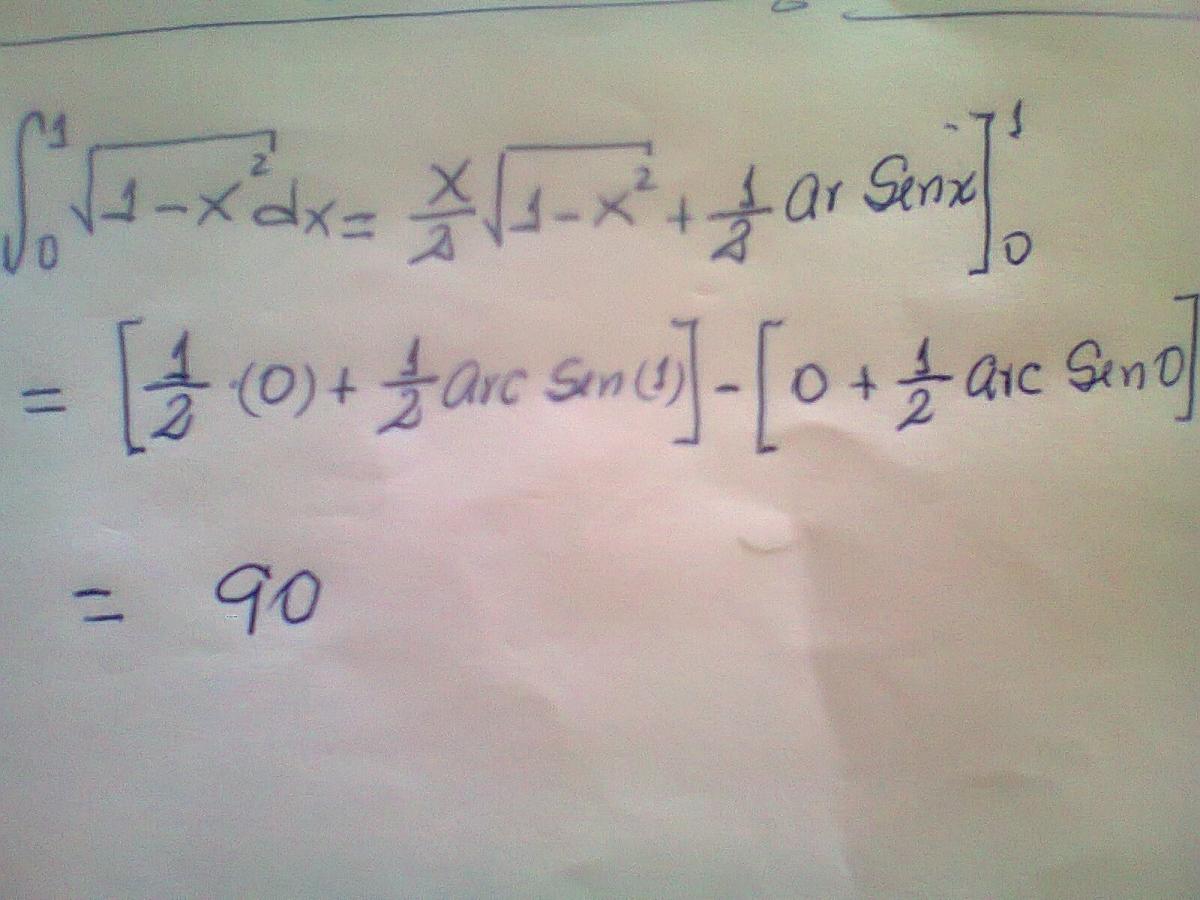 ∫₀¹ √(1-x²) dx = x/2 √(1-x²) + 1/2 ar Sen x]₀¹
= [1/2 ·(0) + 1/2 arc Sen (1)] - [0 + 1/2 arc Sen 0]
= 90